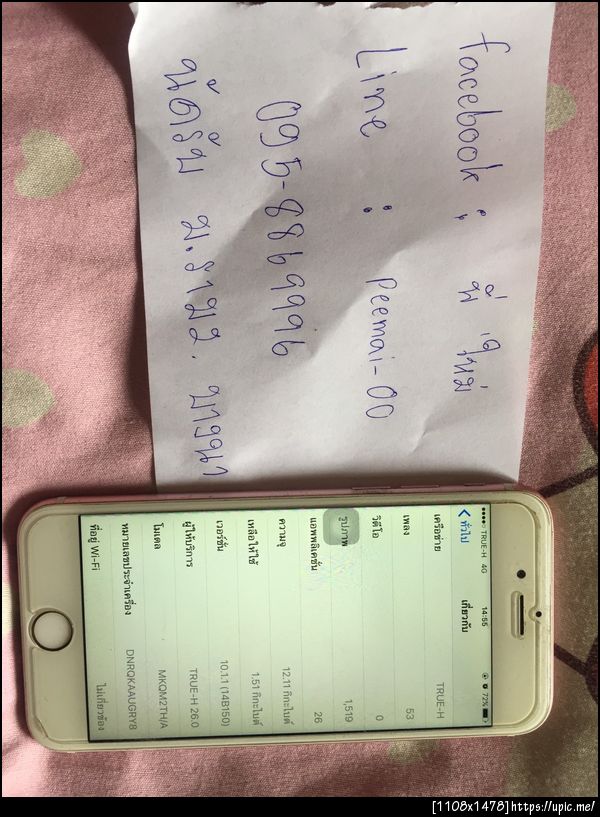 facebook : พี่ ใหม่
Line : Peemai-00
095-8869996
นัดรับ ม.ราม2. บางนา
TRUE-H 4G 14:55 72%
ทั่วไป เกี่ยวกับ
เครือข่าย TRUE-H
เพลง 53
วิดีโอ 0
รูปภาพ 1,519
แอพพลิเคชั่น 26
ความจุ 12.11 กิกะไบต์
เหลือให้ใช้ 1.51 กิกะไบต์
เวอร์ชั่น 10.1.1 (14B150)
ผู้ให้บริการ TRUE-H 26.0
โมเดล MKQM2TH/A
หมายเลขประจำเครื่อง DNRQKAAUGRY8
ที่อยู่ Wi-Fi ไม่เกี่ยวข้อง
[1108x1478]https://upic.me/